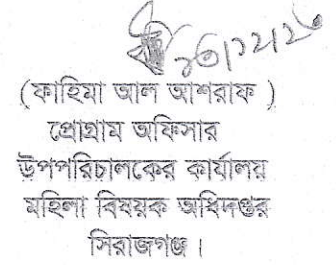 (ফাহিমা আল আশরাফ )
প্রোগ্রাম অফিসার
উপপরিচালকের কার্যালয়
মহিলা বিষয়ক অধিদপ্তর
সিরাজগঞ্জ ।